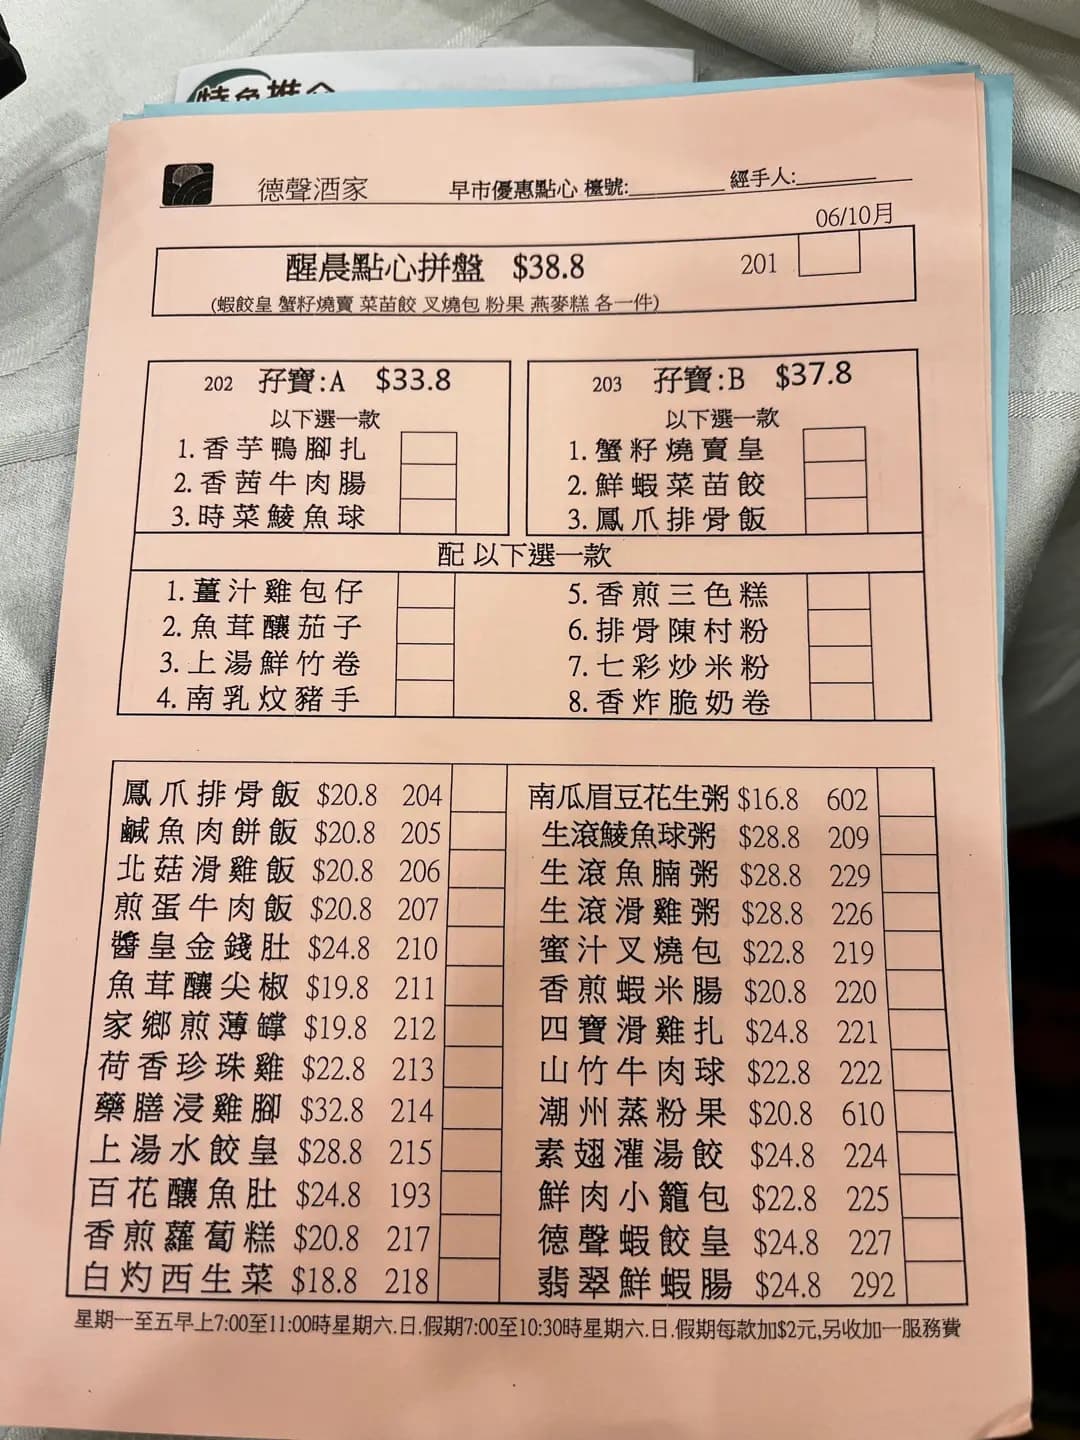 特色推介
德聲酒家 早市優惠點心 檯號:________ 經手人:________
06/10月
醒晨點心拼盤 $38.8 201
(蝦餃皇 蟹籽燒賣 菜苗餃 叉燒包 粉果 燕麥糕 各一件)
202 孖寶:A $33.8
以下選一款
1.香芋鴨腳扎
2.香茜牛肉腸
3.時菜鯪魚球
203 孖寶:B $37.8
以下選一款
1.蟹籽燒賣皇
2.鮮蝦菜苗餃
3.鳳爪排骨飯
配 以下選一款
1.薑汁雞包仔
2.魚茸釀茄子
3.上湯鮮竹卷
4.南乳炆豬手
5.香煎三色糕
6.排骨陳村粉
7.七彩炒米粉
8.香炸脆奶卷
鳳爪排骨飯 $20.8 204
鹹魚肉餅飯 $20.8 205
北菇滑雞飯 $20.8 206
煎蛋牛肉飯 $20.8 207
醬皇金錢肚 $24.8 210
魚茸釀尖椒 $19.8 211
家鄉煎薄罉 $19.8 212
荷香珍珠雞 $22.8 213
藥膳浸雞腳 $32.8 214
上湯水餃皇 $28.8 215
百花釀魚肚 $24.8 193
香煎蘿蔔糕 $20.8 217
白灼西生菜 $18.8 218
南瓜眉豆花生粥 $16.8 602
生滾鯪魚球粥 $28.8 209
生滾魚腩粥 $28.8 229
生滾滑雞粥 $28.8 226
蜜汁叉燒包 $22.8 219
香煎蝦米腸 $20.8 220
四寶滑雞扎 $24.8 221
山竹牛肉球 $22.8 222
潮州蒸粉果 $20.8 610
素翅灌湯餃 $24.8 224
鮮肉小籠包 $22.8 225
德聲蝦餃皇 $24.8 227
翡翠鮮蝦腸 $24.8 292
星期一至五早上7:00至11:00時星期六.日.假期7:00至10:30時星期六.日.假期每款加$2元,另收加一服務費